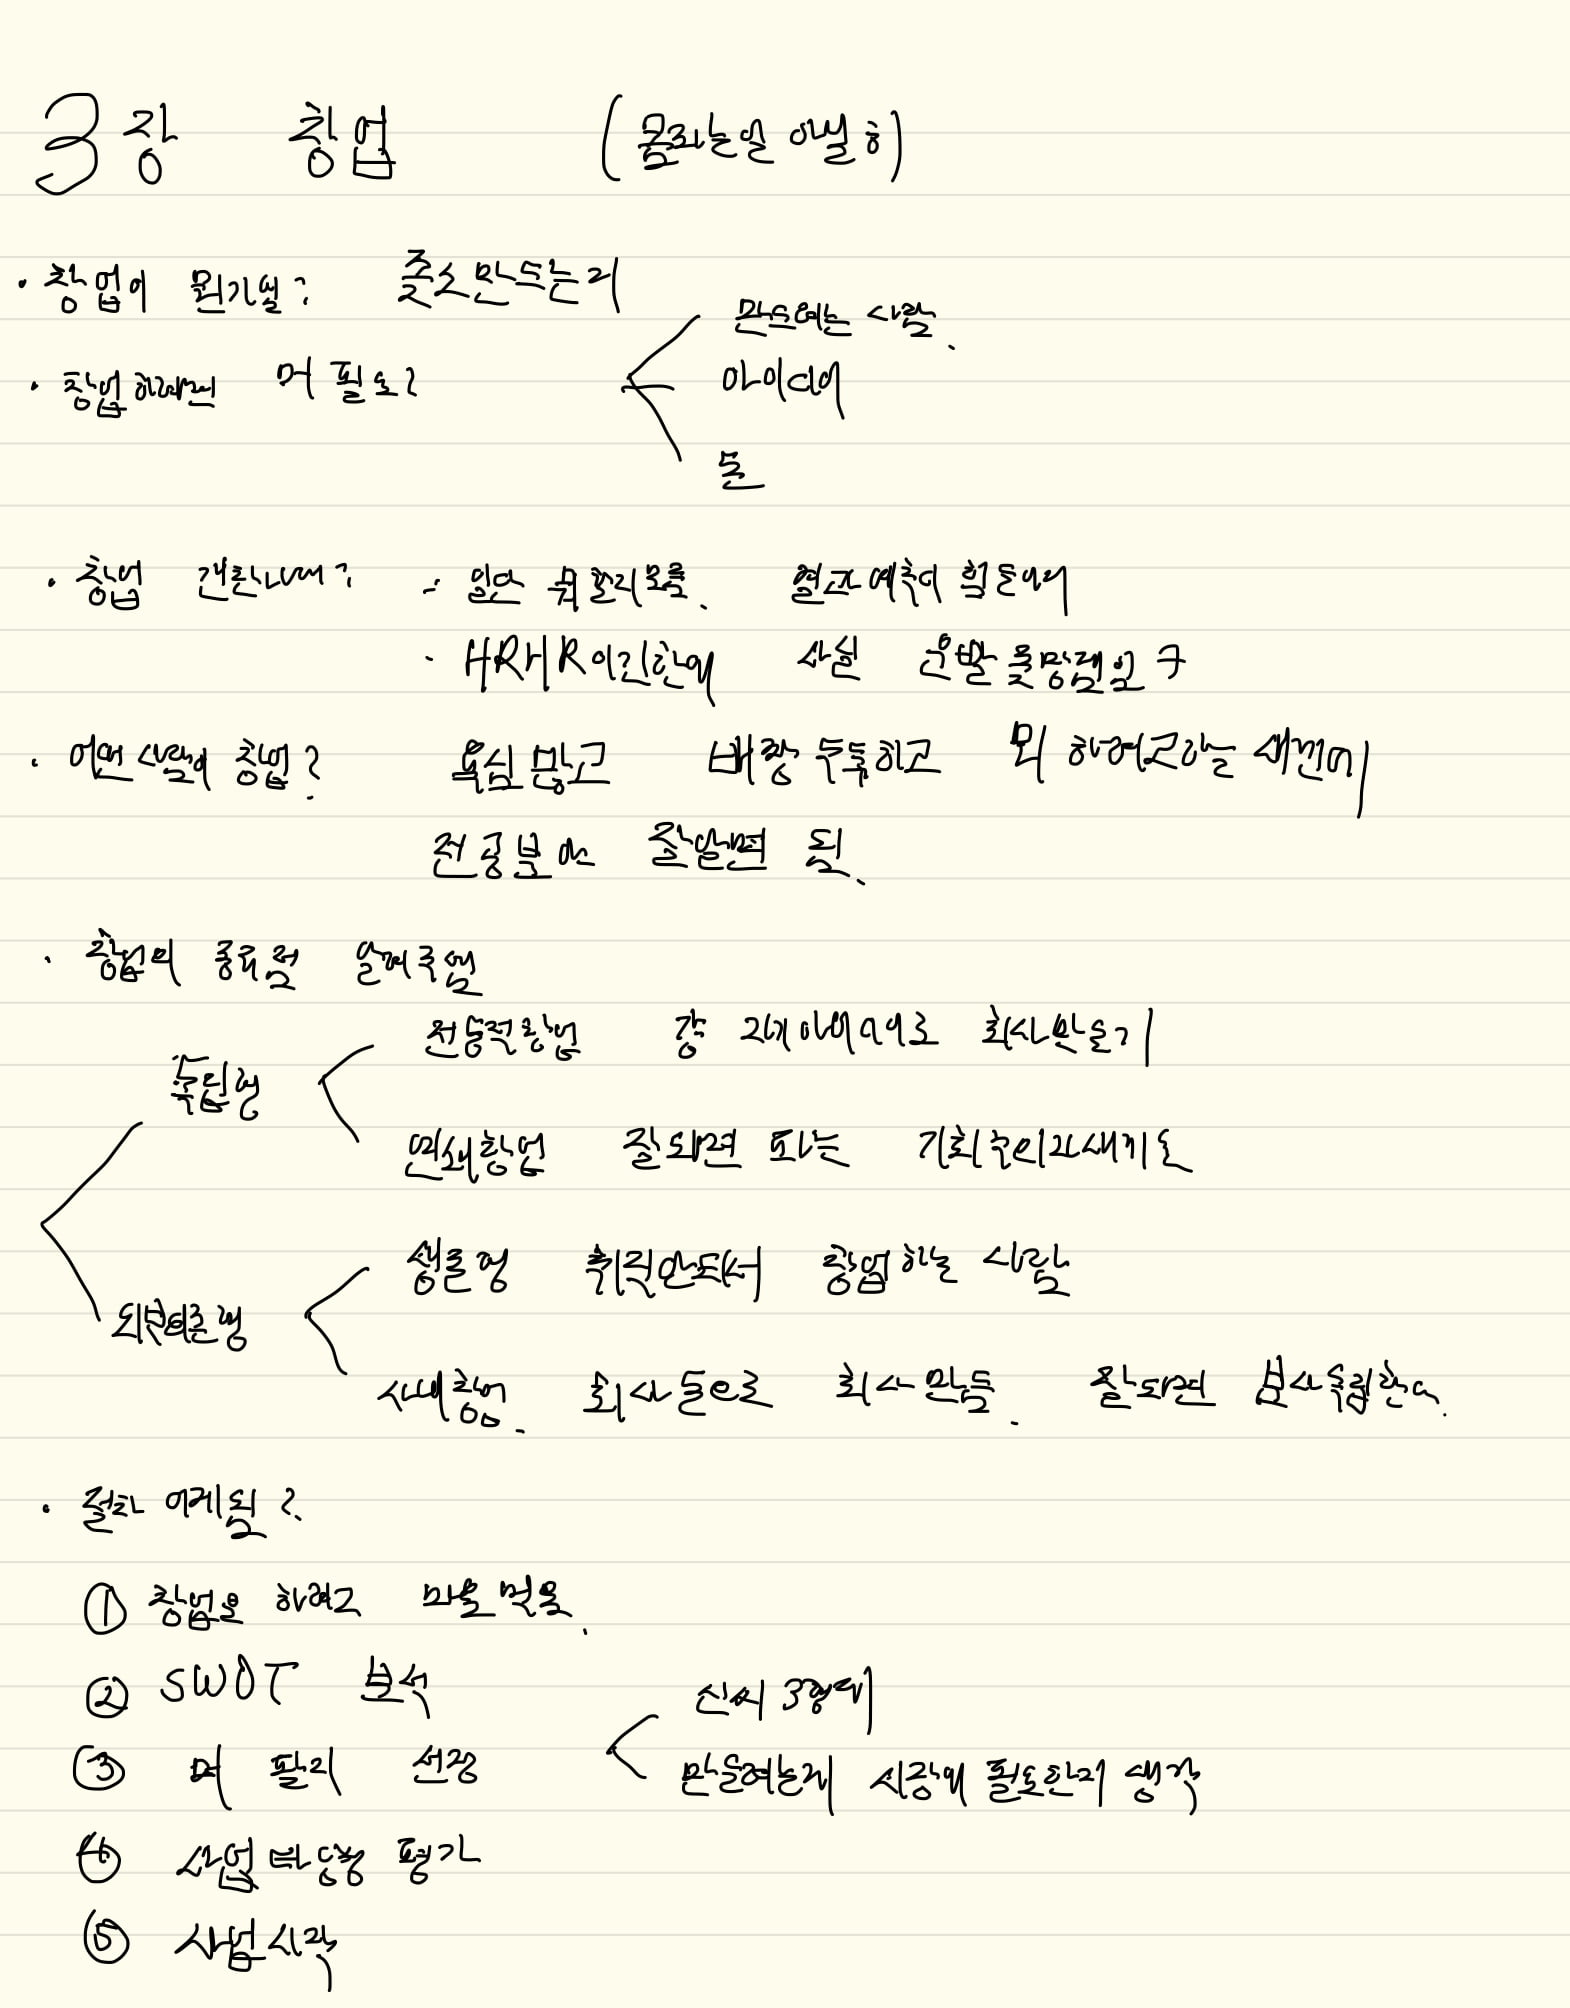 3장 창업
창업이 뭔가일? 좆소만드는거
만드려는 사람.
창업하려면 머 필요?
아이디어
돈
창업 간단나매? 일단 뭐할지모름. 결과예측이 힘들어
HRHR이긴한데 사실 운발
어떤사람이 창업? 욕심많고 배짱두둑하고 뭐 하려고하는
전공분야 잘알면 됨.
창업의 종류를
전통적창업 걍 지게아이디어로 회사만들기
독립형
연쇄창업 잘되면 파는
생존형 취직안돼서 창업하는 사람
외부의존형
사내창업. 회사돈으로 회사만듦. 잘되면 분사독립한다.
절차 어케됨?
① 창업을 하려고 마음먹음.
② SWOT 분석
신씨 3형제
③ 머 팔지 선정
만들려는게 시장에 필요한지 생각
④ 사업타당성 평가
⑤ 사업시작